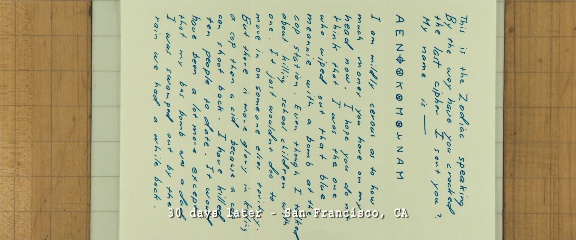 This is the Zodiac speaking
By the way have you cracked
the last cipher I sent you?
My name is ——
A E N ⊕ ⊗ K ⊙ M ⊙ ⅃ N A M
I am mildly cerous as to how
much money you have on my
head now. I hope you do
think that I was the one
who wiped out that blue
meannie with a bomb at the
cop station. Even though I talked
about killing school children with
one. It just wouldnt do to
move in on someone elses teritory.
But there is more glory in killing
a cop then a cid because a cop
can shoot back. I have killed
ten people to date. It would
have been a lot more except
that my bus bomb was a dud
I was swamped out by the
rain we had a while back.
30 days later - San Francisco, CA